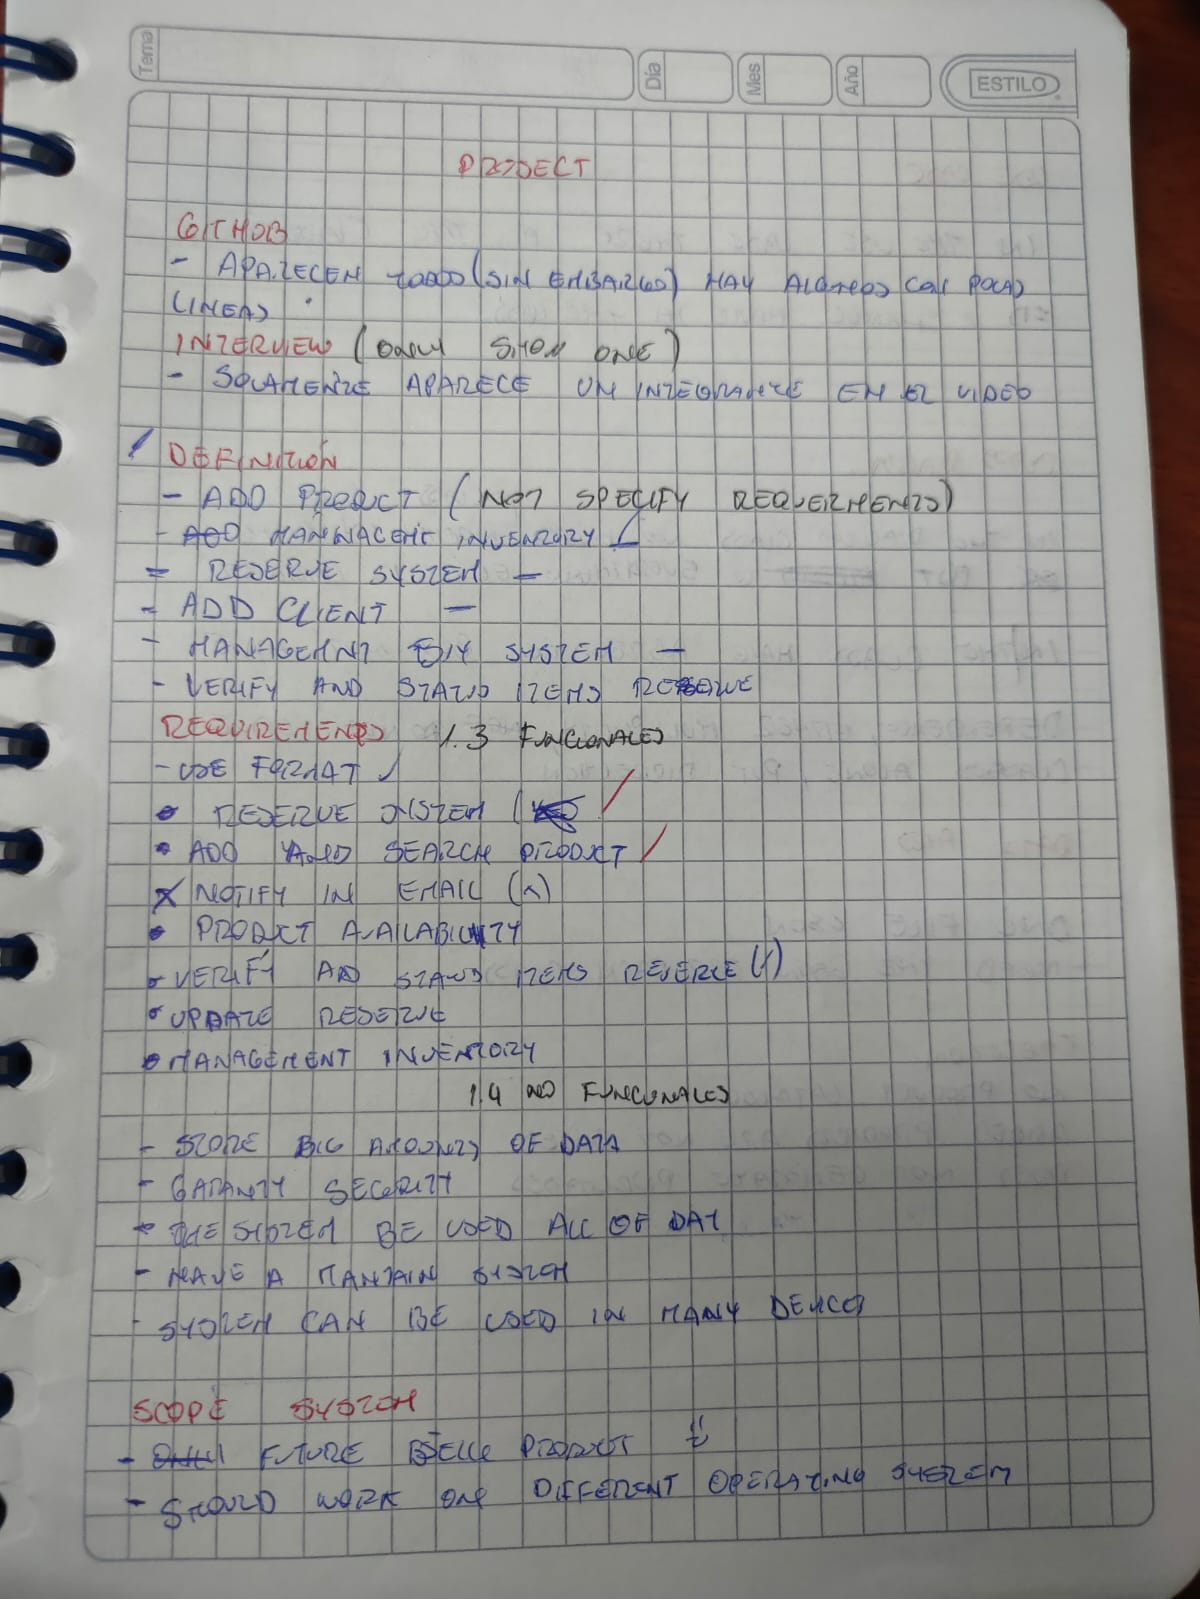 Tema
Día
Mes
Año
ESTILO
PROJECT
GITHUB
- APARECEN TODOS (SIN EMBARGO) HAY ALGUNOS CON POCAS
LINEAS
INTERVIEW (ONLY SHOW ONE)
- SOLAMENTE APARECE UN INTEGRANTE EN EL VIDEO
DEFINITIÓN
- ADD PRODUCT (NOT SPECIFY REQUERIMENTS)
- ADD MANNAGEMT INVENTORY
- RESERVE SYSTEM -
- ADD CLIENT -
- MANAGEMNT SYSTEM -
- VERIFY AND STATUS ITEMS RESERVE
REQUIREMENTS 1.3 FUNCIONALES
- USE FORMAT
• RESERVE (
• ADD AND SEARCH PRODUCT
X NOTIFY IN EMAIL (X)
• PRODUCT AVAILABILITY
• VERIFY AND STATUS ITEMS RESERVE
• UPDATE RESERVE
• MANAGEMENT INVENTORY
1.4 NO FUNCIONALES
- STORE BIG AMOUNTS OF DATA
- GARANTY SECURITY
- THE SYSTEM BE USED ALL OF DAY
- HAVE A MANTAIN SYSTEM
- SYSTEM CAN BE USED IN MANY DEVICES
SCOPE SYSTEM
- FUTURE PRODUCT
- SHOULD WORK ON DIFFERENT OPERATING SYSTEM